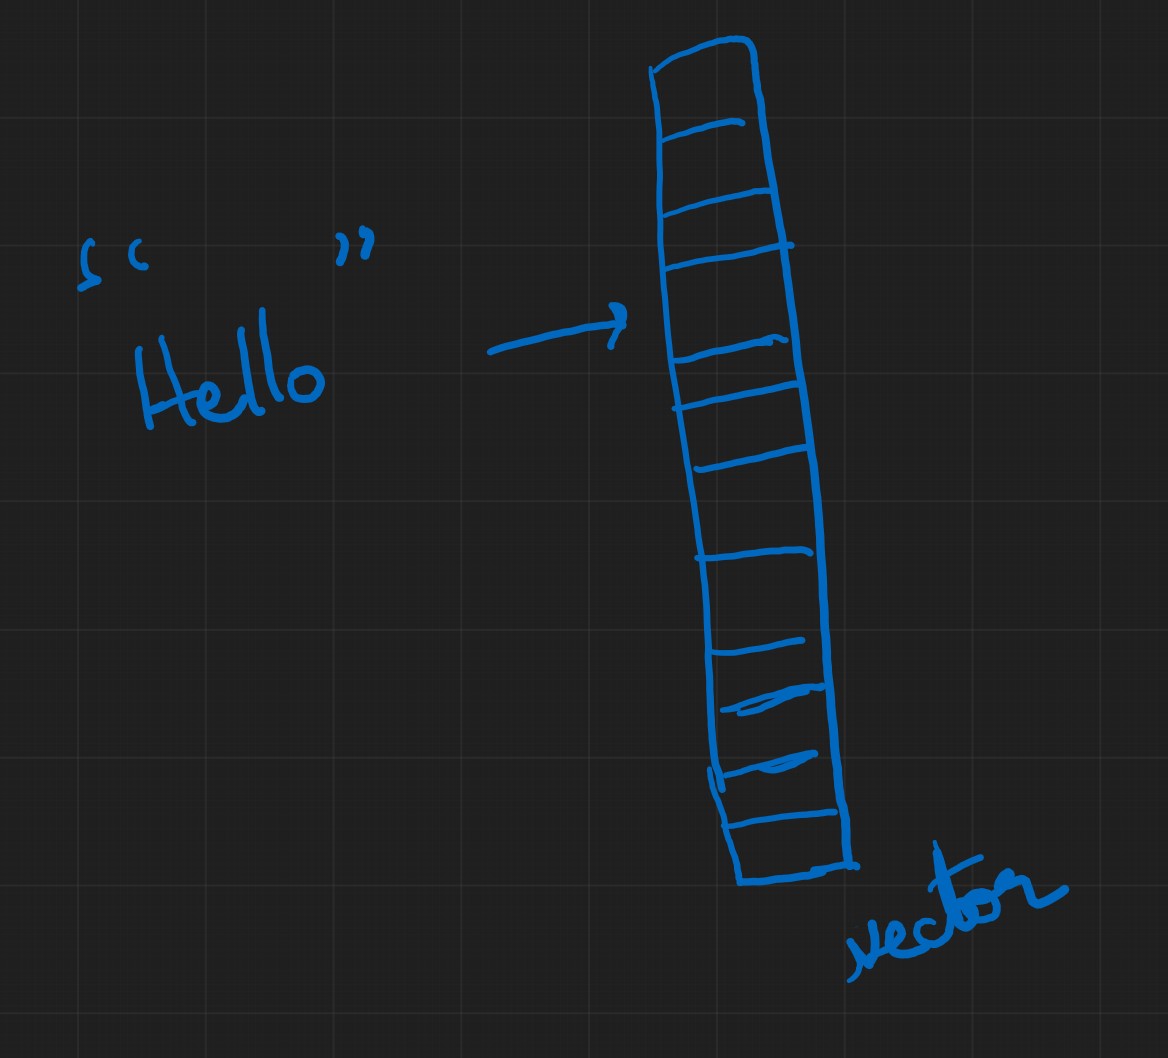 “ ”
Hello
vector